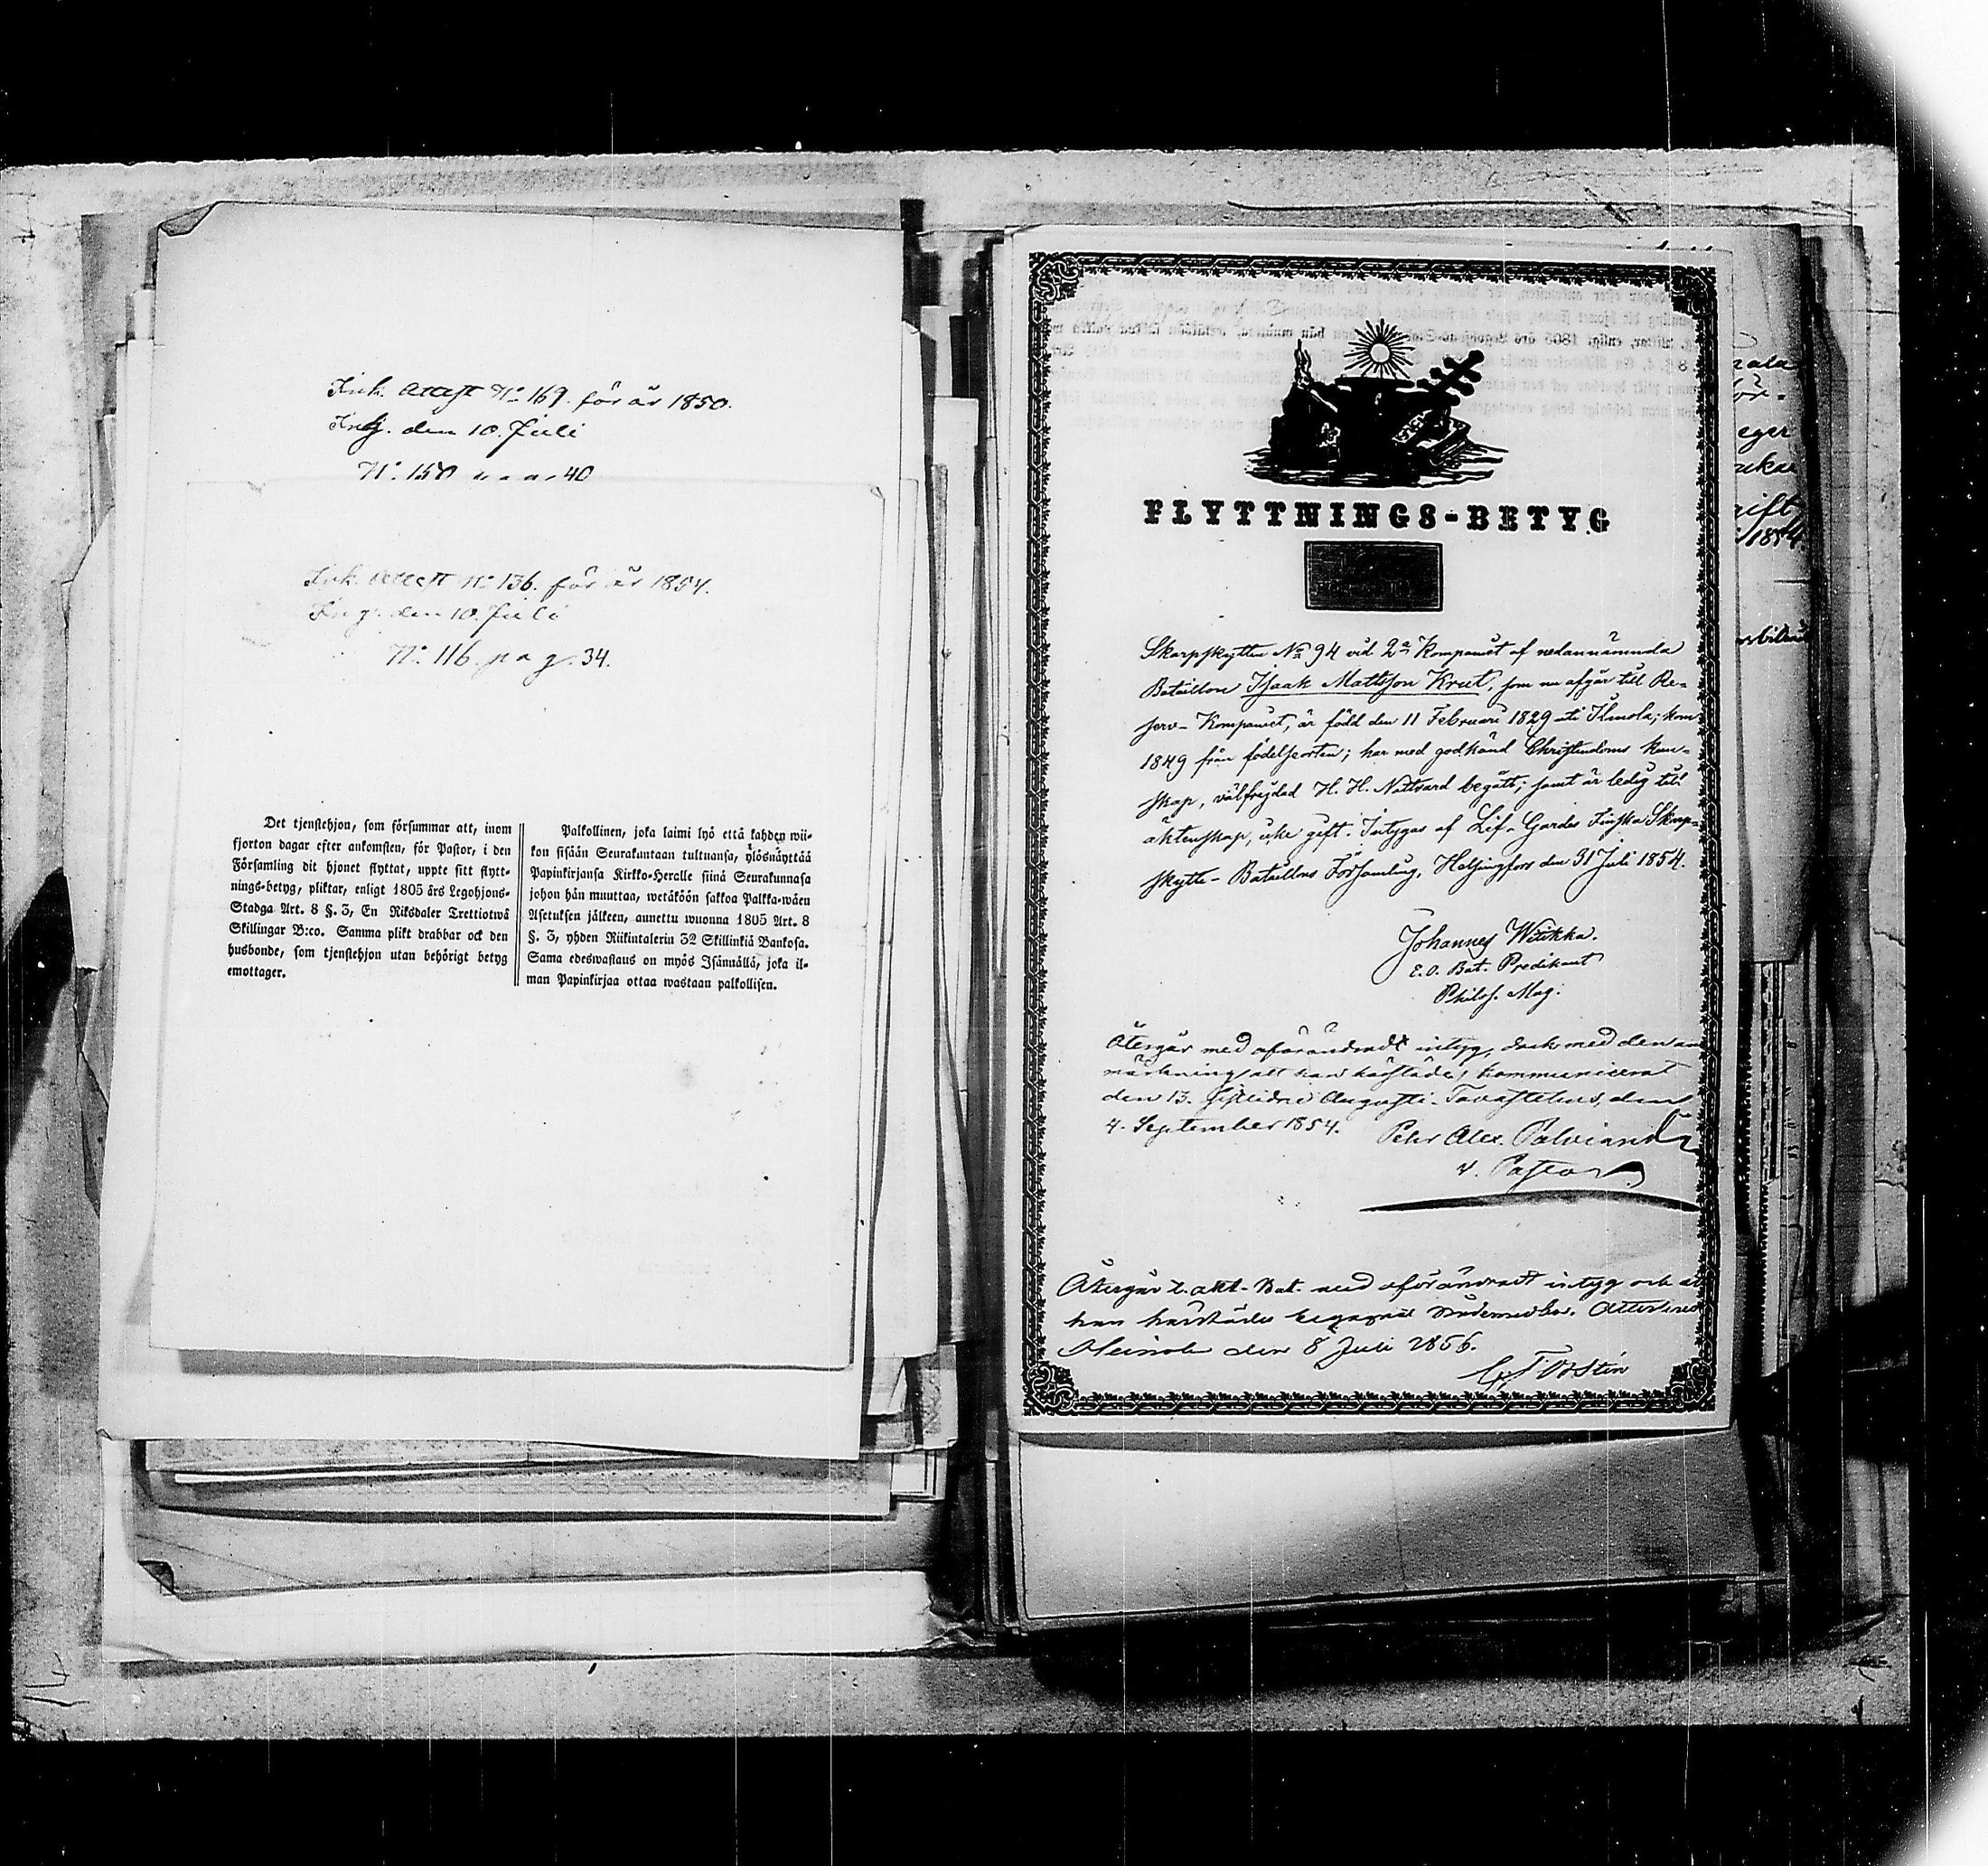 Ink. Attest No 169. för år 1850.
Ing. den 10. Juli
No 150 pag. 40
Ink. Attest No 136. för år 1854.
Ing. den 10. Juli
No 116. pag. 34.
Det tjenstehjon, som försummar att, inom
fjorton dagar efter ankomsten, för Pastor, i den
Församling dit hjonet flyttat, uppte sitt flytt-
nings-betyg, pliktar, enligt 1805 års Legohjons-
Stadga Art. 8 §. 3, En Riksdaler Trettiotwå
Skillingar B:co. Samma plikt drabbar ock den
husbonde, som tjenstehjon utan behörigt betyg
emottager.
Palkollinen, joka laimi lyö että kahden wii-
kon sisään Seurakuntaan tultuansa, ylösnäyttää
Papinkirjansa Kirkko-Herralle siinä Seurakunnasa
johon hän muuttaa, wetäköön sakkoa Palkka-wäen
Asetuksen jälkeen, annettu wuonna 1805 Art. 8
§. 3, yhden Riikintalerin 32 Skillinkiä Bankosa.
Sama edeswastaus on myös Isännällä, joka il-
man Papinkirjaa ottaa wastaan palkollisen.
FLYTTNINGS-BETYG
Skarpskytten No 94 vid 2a Kompaniet af nedannämnda
Bataillon Isaak Mattsson Krut, som nu afgår till Re-
serv-Kompaniet, är född den 11 Februari 1829 uti Ilmola; kom
1849 från födelseorten; har med godkänd Christendoms kun-
skap, välfrejdad H. H. Nattvard begått; samt är ledig till
äktenskap, icke gift. Intygas af Lif-Gardes Finska Skarp-
skytte-Bataillons Församling, Helsingfors den 31 Juli 1854.
Johannes Witikka.
E.O. Bat. Predikant
Philos. Mag.
Återgår med oförändradt intyg, dock med den an
märkning att han härstädes kommunicerat
den 13. sistlidne Augusti. Tavastehus, den
4. September 1854. Pehr Alex.
v. Pastor
Återgår t. akt. Bat. med oförändradt intyg och at
han härstädes begagnat nådemedlen. Attesteras
Heinola den 8 Juli 1856.